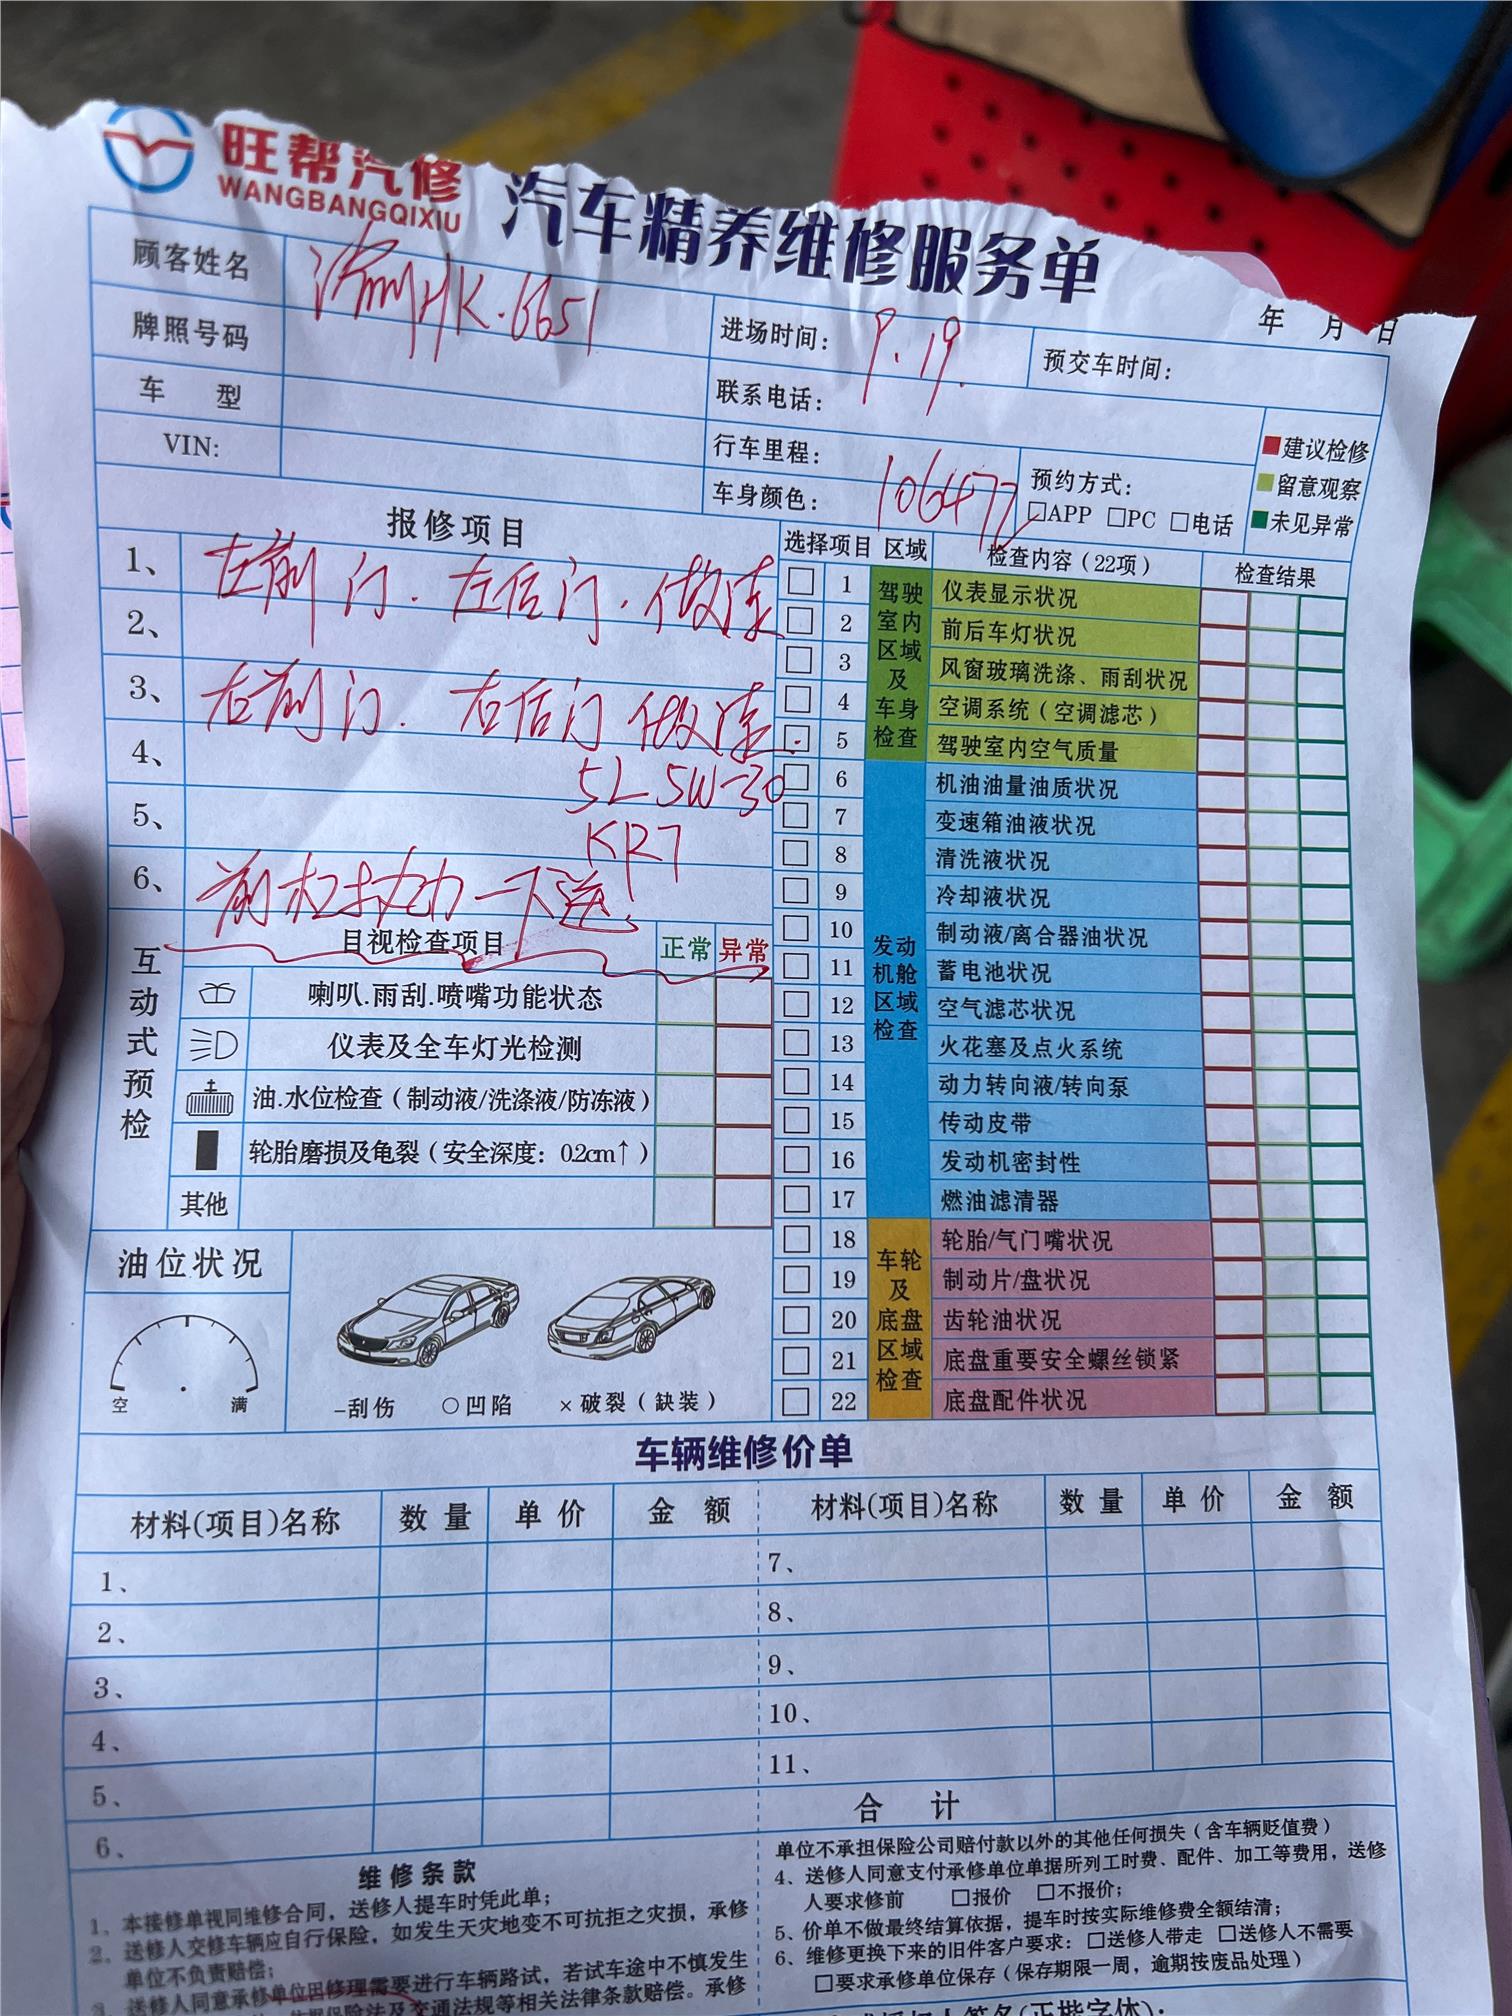 旺帮汽修
WANGBANGQIXIU
汽车精养维修服务单
年 月 日
顾客姓名
HK·6651
牌照号码
进场时间: 9.19.
预交车时间:
车 型
联系电话:
VIN:
行车里程: 106472
车身颜色:
预约方式:
□APP □PC □电话
建议检修
留意观察
未见异常
报修项目
1、左前门.左后门.做漆
2、
3、右前门.右后门做漆.
4、
5L 5W-30
5、
KR7
6、前杠 一下送
互动式预检
目视检查项目 正常 异常
喇叭.雨刮.喷嘴功能状态
仪表及全车灯光检测
油.水位检查(制动液/洗涤液/防冻液)
轮胎磨损及龟裂(安全深度: 0.2cm↑)
其他
油位状况
空 满
-刮伤 ○凹陷 ×破裂(缺装)
选择项目 区域 检查内容(22项) 检查结果
驾驶室内区域及车身检查
1 仪表显示状况
2 前后车灯状况
3 风窗玻璃洗涤、雨刮状况
4 空调系统(空调滤芯)
5 驾驶室内空气质量
发动机舱区域检查
6 机油油量油质状况
7 变速箱油液状况
8 清洗液状况
9 冷却液状况
10 制动液/离合器油状况
11 蓄电池状况
12 空气滤芯状况
13 火花塞及点火系统
14 动力转向液/转向泵
15 传动皮带
16 发动机密封性
17 燃油滤清器
车轮及底盘区域检查
18 轮胎/气门嘴状况
19 制动片/盘状况
20 齿轮油状况
21 底盘重要安全螺丝锁紧
22 底盘配件状况
车辆维修价单
材料(项目)名称 数量 单价 金额 材料(项目)名称 数量 单价 金额
1、 7、
2、 8、
3、 9、
4、 10、
5、 11、
6、 合 计
维修条款
1、本接修单视同维修合同，送修人提车时凭此单；
2、送修人交修车辆应自行保险，如发生天灾地变不可抗拒之灾损，承修
单位不负责赔偿；
3、送修人同意承修单位因修理需要进行车辆路试，若试车途中不慎发生
依据保险法及交通法规等相关法律条款赔偿。承修
单位不承担保险公司赔付款以外的其他任何损失(含车辆贬值费)
4、送修人同意支付承修单位单据所列工时费、配件、加工等费用，送修
人要求修前 □报价 □不报价；
5、价单不做最终结算依据，提车时按实际维修费全额结清；
6、维修更换下来的旧件客户要求：□送修人带走 □送修人不需要
□要求承修单位保存(保存期限一周，逾期按废品处理)
签名(正楷字体):